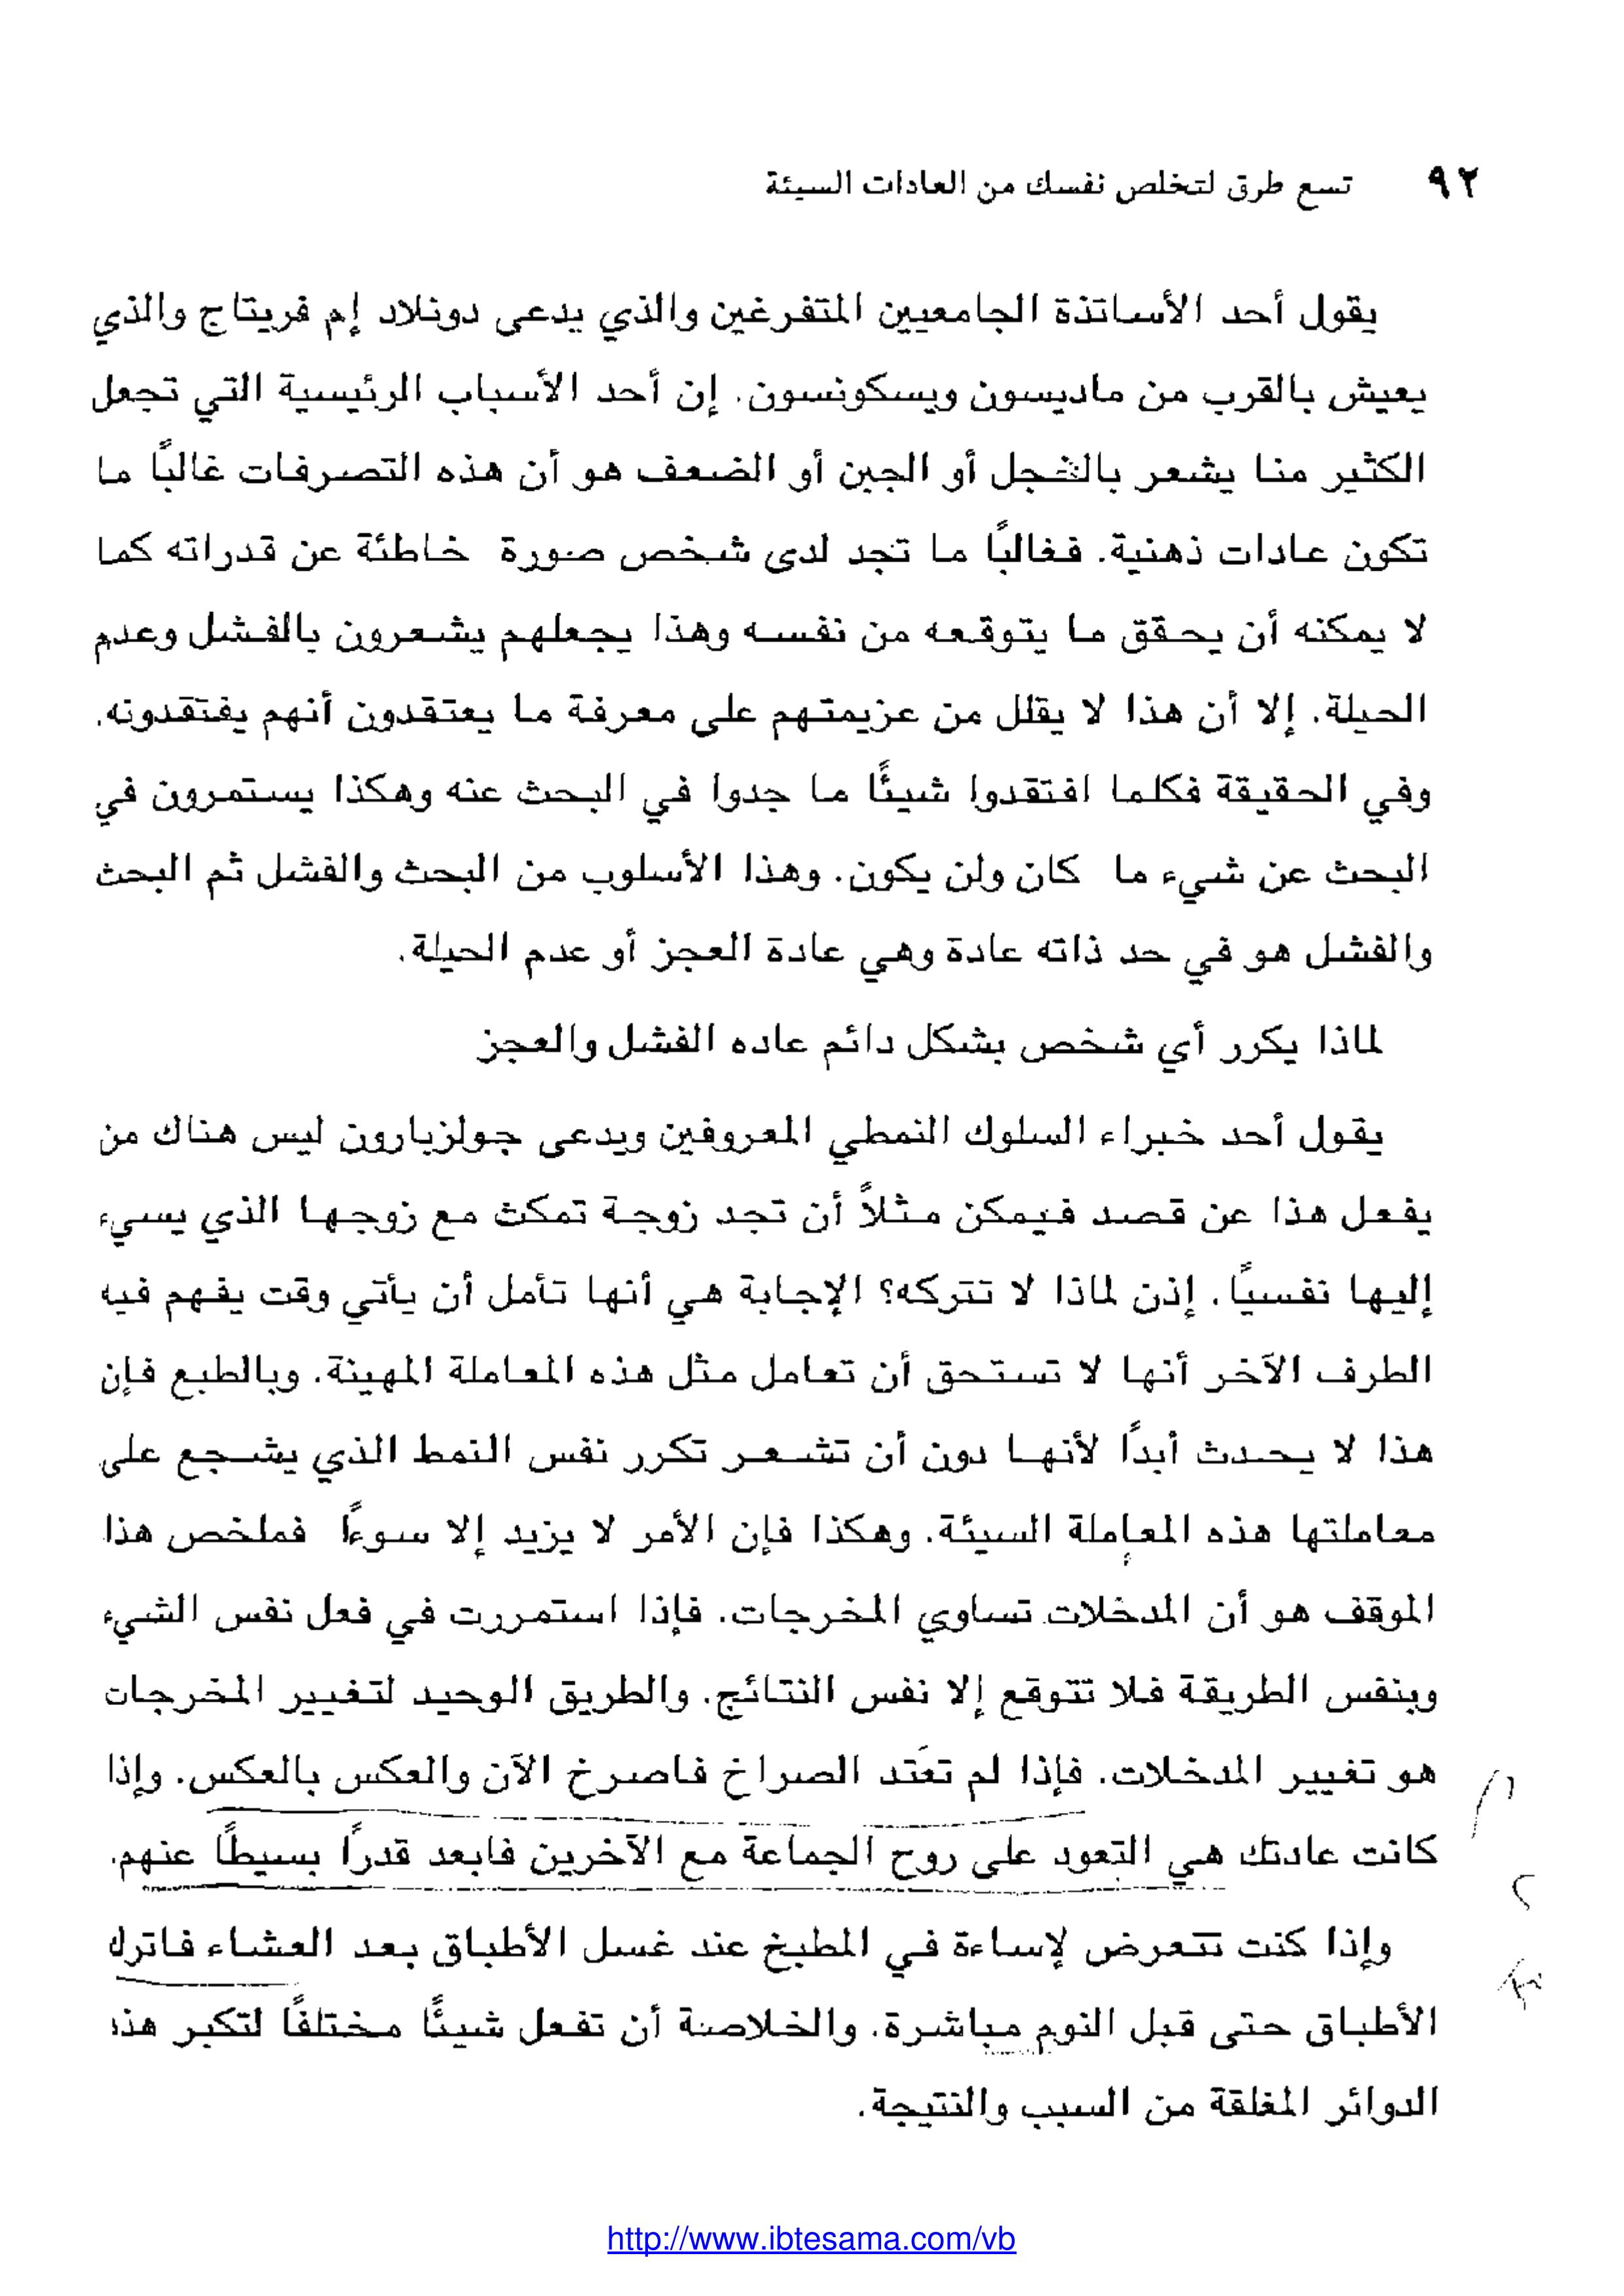 ٩٢ تسع طرق لتخلص نفسك من العادات السيئة
يقول أحد الأساتذة الجامعيين المتفرغين والذي يدعى دونلاد إم فريتاج والذي
يعيش بالقرب من ماديسون ويسكونسون. إن أحد الأسباب الرئيسية التي تجعل
الكثير منا يشعر بالخجل أو الجبن أو الضعف هو أن هذه التصرفات غالبًا ما
تكون عادات ذهنية. فغالبًا ما تجد لدى شخص صورة خاطئة عن قدراته كما
لا يمكنه أن يحقق ما يتوقعه من نفسه وهذا يجعلهم يشعرون بالفشل وعدم
الحيلة. إلا أن هذا لا يقلل من عزيمتهم على معرفة ما يعتقدون أنهم يفتقدونه.
وفي الحقيقة فكلما افتقدوا شيئًا ما جدوا في البحث عنه وهكذا يستمرون في
البحث عن شيء ما كان ولن يكون. وهذا الأسلوب من البحث والفشل ثم البحث
والفشل هو في حد ذاته عادة وهي عادة العجز أو عدم الحيلة.
لماذا يكرر أي شخص بشكل دائم عاده الفشل والعجز
يقول أحد خبراء السلوك النمطي المعروفين ويدعى جولزبارون ليس هناك من
يفعل هذا عن قصد فيمكن مثلاً أن تجد زوجة تمكث مع زوجها الذي يسيء
إليها نفسيًا. إذن لماذا لا تتركه؟ الإجابة هي أنها تأمل أن يأتي وقت يفهم فيه
الطرف الآخر أنها لا تستحق أن تعامل مثل هذه المعاملة المهينة. وبالطبع فإن
هذا لا يحدث أبدًا لأنها دون أن تشعر تكرر نفس النمط الذي يشجع على
معاملتها هذه المعاملة السيئة. وهكذا فإن الأمر لا يزيد إلا سوءًا فملخص هذا
الموقف هو أن المدخلات تساوي المخرجات. فإذا استمررت في فعل نفس الشيء
وبنفس الطريقة فلا تتوقع إلا نفس النتائج. والطريق الوحيد لتغيير المخرجات
هو تغيير المدخلات. فإذا لم تعَتد الصراخ فاصرخ الآن والعكس بالعكس. وإذا
كانت عادتك هي التعود على روح الجماعة مع الآخرين فابعد قدرًا بسيطًا عنهم.
وإذا كنت تتعرض لإساءة في المطبخ عند غسل الأطباق بعد العشاء فاترك
الأطباق حتى قبل النوم مباشرة. والخلاصة أن تفعل شيئًا مختلفًا لتكبر هذه
الدوائر المغلقة من السبب والنتيجة.
http://www.ibtesama.com/vb